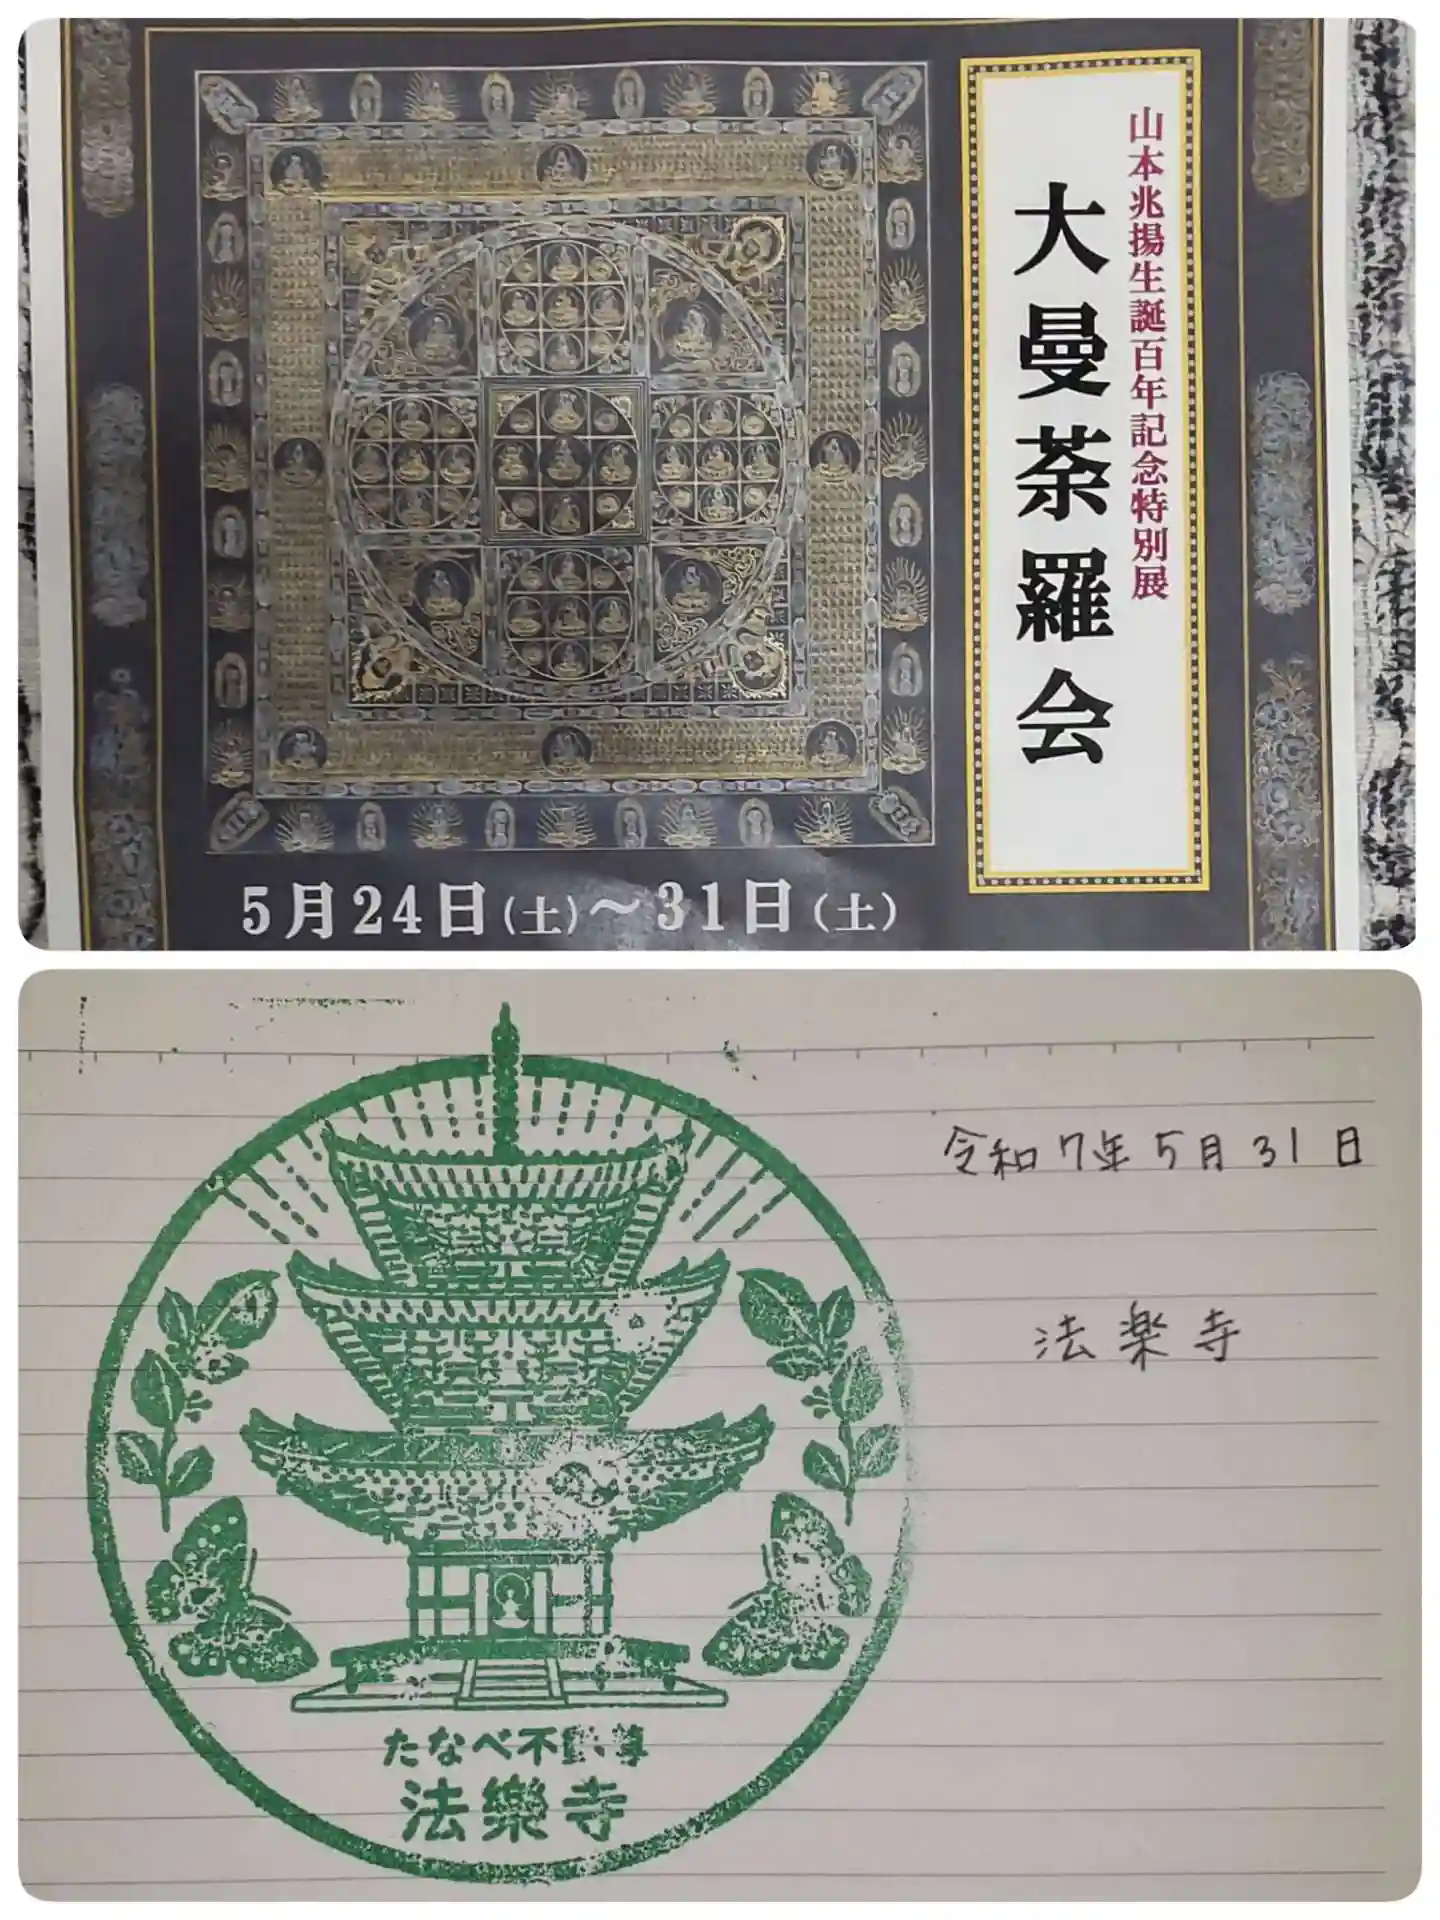 山本兆揚生誕百年記念特別展
大曼荼羅会
5月24日(土)～31日(土)
令和7年5月31日
法楽寺
たなべ不動尊
法樂寺